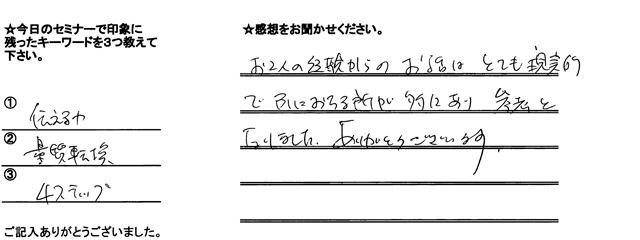 ★今日のセミナーで印象に
残ったキーワードを3つ教えて
下さい。
① 伝える力
② 量質転換
③ 4ステップ
ご記入ありがとうございました。
★感想をお聞かせください。
お2人の経験からのお話はとても現実的
で 身におちる所が多々あり 参考と
なりました。ありがとうございます。